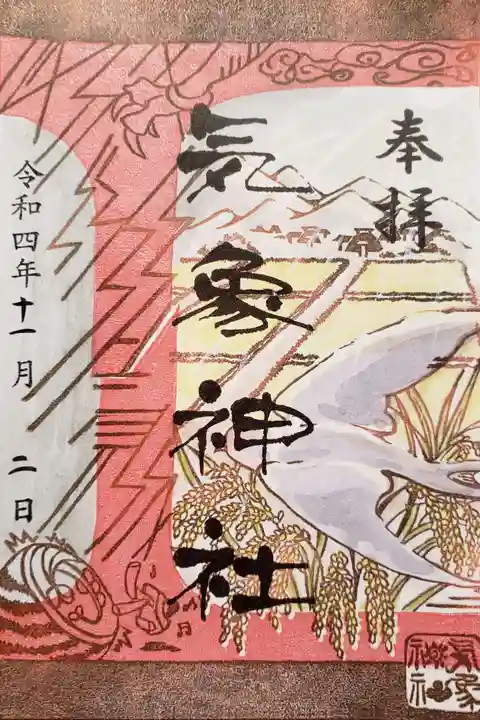 奉拝
気象神社
令和四年十一月二日
気象
神社